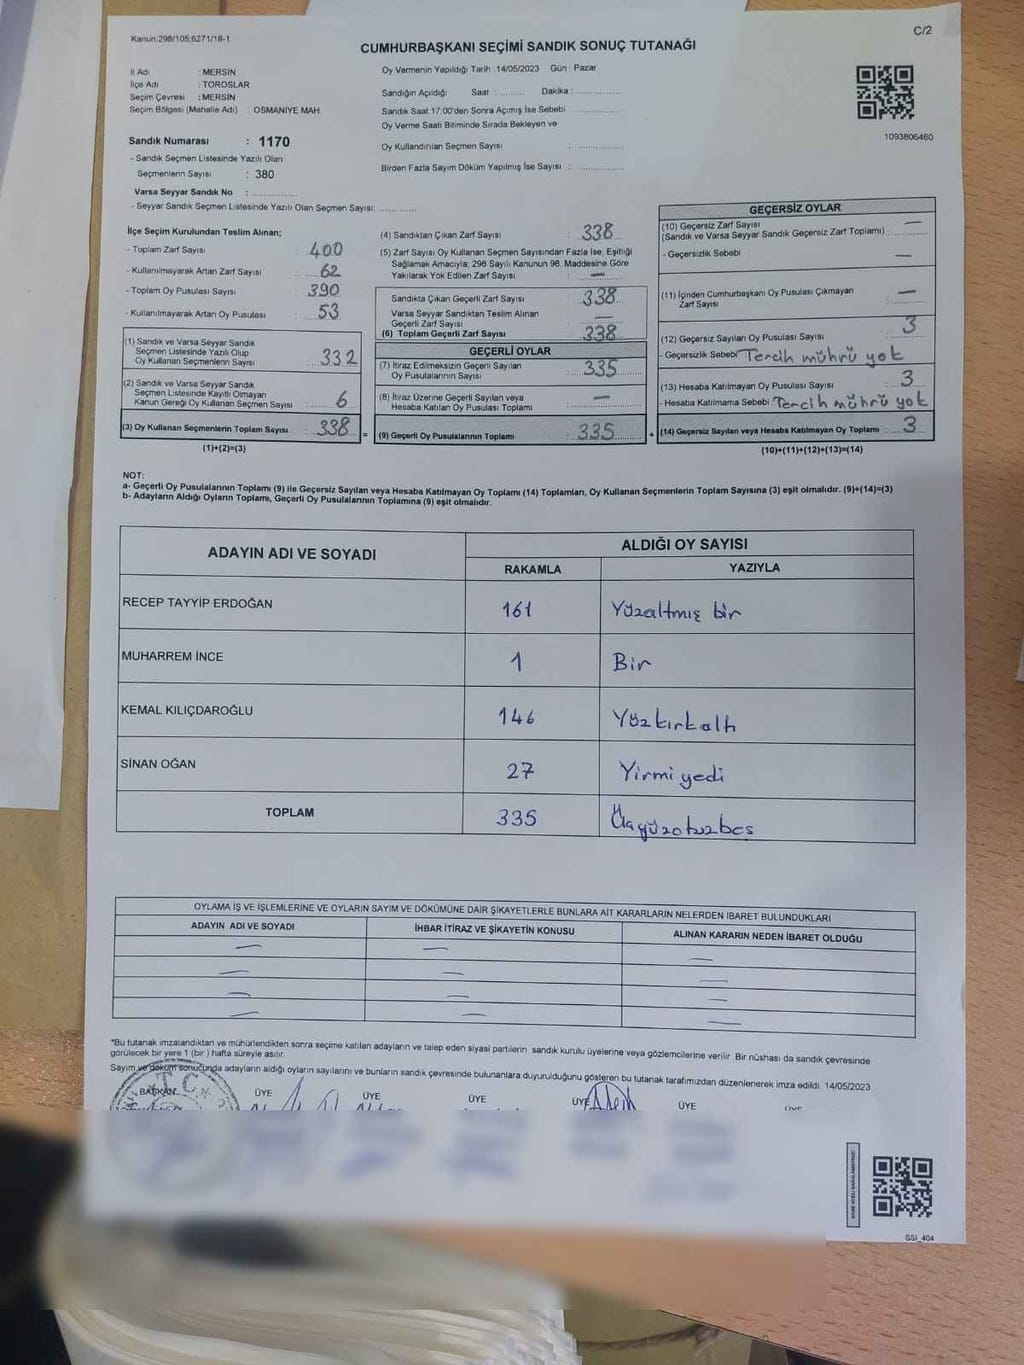 Kanun:298/105;6271/18-1
C/2
CUMHURBAŞKANI SEÇİMİ SANDIK SONUÇ TUTANAĞI
İl Adı : MERSİN
İlçe Adı : TOROSLAR
Seçim Çevresi : MERSİN
Seçim Bölgesi (Mahalle Adı) : OSMANİYE MAH.
Sandık Numarası : 1170
- Sandık Seçmen Listesinde Yazılı Olan
Seçmenlerin Sayısı : 380
Varsa Seyyar Sandık No :
- Seyyar Sandık Seçmen Listesinde Yazılı Olan Seçmen Sayısı:
Oy Vermenin Yapıldığı Tarih : 14/05/2023 Gün : Pazar
Sandığın Açıldığı Saat : Dakika :
Sandık Saat 17:00'den Sonra Açılmış İse Sebebi
Oy Verme Saati Bitiminde Sırada Bekleyen ve
Oy Kullandırılan Seçmen Sayısı :
Birden Fazla Sayım Döküm Yapılmış İse Sayısı :
1093806460
İlçe Seçim Kurulundan Teslim Alınan;
- Toplam Zarf Sayısı 400
- Kullanılmayarak Artan Zarf Sayısı 62
- Toplam Oy Pusulası Sayısı 390
- Kullanılmayarak Artan Oy Pusulası 53
(1) Sandık ve Varsa Seyyar Sandık
Seçmen Listesinde Yazılı Olup
Oy Kullanan Seçmenlerin Sayısı 332
(2) Sandık ve Varsa Seyyar Sandık
Seçmen Listesinde Kayıtlı Olmayan
Kanun Gereği Oy Kullanan Seçmen Sayısı 6
(3) Oy Kullanan Seçmenlerin Toplam Sayısı 338 =
(1)+(2)=(3)
(4) Sandıktan Çıkan Zarf Sayısı : 338
(5) Zarf Sayısı Oy Kullanan Seçmen Sayısından Fazla İse, Eşitliği
Sağlamak Amacıyla, 298 Sayılı Kanunun 98. Maddesine Göre
Yakılarak Yok Edilen Zarf Sayısı : —
Sandıkta Çıkan Geçerli Zarf Sayısı : 338
Varsa Seyyar Sandıktan Teslim Alınan
Geçerli Zarf Sayısı : —
(6) Toplam Geçerli Zarf Sayısı : 338
GEÇERLİ OYLAR
(7) İtiraz Edilmeksizin Geçerli Sayılan
Oy Pusulalarının Sayısı : 335
(8) İtiraz Üzerine Geçerli Sayılan veya
Hesaba Katılan Oy Pusulası Toplamı : —
(9) Geçerli Oy Pusulalarının Toplamı : 335 +
GEÇERSİZ OYLAR
(10) Geçersiz Zarf Sayısı —
(Sandık ve Varsa Seyyar Sandık Geçersiz Zarf Toplamı) :
- Geçersizlik Sebebi : —
(11) İçinden Cumhurbaşkanı Oy Pusulası Çıkmayan
Zarf Sayısı —
(12) Geçersiz Sayılan Oy Pusulası Sayısı : 3
- Geçersizlik Sebebi Tercih mührü yok
(13) Hesaba Katılmayan Oy Pusulası Sayısı : 3
- Hesaba Katılmama Sebebi : Tercih mührü yok
(14) Geçersiz Sayılan veya Hesaba Katılmayan Oy Toplamı : 3
(10)+(11)+(12)+(13)=(14)
NOT:
a- Geçerli Oy Pusulalarının Toplamı (9) ile Geçersiz Sayılan veya Hesaba Katılmayan Oy Toplamı (14) Toplamları, Oy Kullanan Seçmenlerin Toplam Sayısına (3) eşit olmalıdır. (9)+(14)=(3)
b- Adayların Aldığı Oyların Toplamı, Geçerli Oy Pusulalarının Toplamına (9) eşit olmalıdır.
ADAYIN ADI VE SOYADI
ALDIĞI OY SAYISI
RAKAMLA YAZIYLA
RECEP TAYYİP ERDOĞAN 161 Yüzaltmış bir
MUHARREM İNCE 1 Bir
KEMAL KILIÇDAROĞLU 146 Yüzkırkaltı
SİNAN OĞAN 27 Yirmi yedi
TOPLAM 335 Üçyüzotuzbeş
OYLAMA İŞ VE İŞLEMLERİNE VE OYLARIN SAYIM VE DÖKÜMÜNE DAİR ŞİKAYETLERLE BUNLARA AİT KARARLARIN NELERDEN İBARET BULUNDUKLARI
ADAYIN ADI VE SOYADI İHBAR İTİRAZ VE ŞİKAYETİN KONUSU ALINAN KARARIN NEDEN İBARET OLDUĞU
— — —
— — —
— — —
— — —
*Bu tutanak imzalandıktan ve mühürlendikten sonra seçime katılan adayların ve talep eden siyasi partilerin sandık kurulu üyelerine veya gözlemcilerine verilir. Bir nüshası da sandık çevresinde
görülecek bir yere 1 (bir ) hafta süreyle asılır.
Sayım ve döküm sonucunda adayların aldığı oyların sayılarını ve bunların sandık çevresinde bulunanlara duyurulduğunu gösteren bu tutanak tarafımızdan düzenlenerek imza edildi. 14/05/2023
BAŞKAN ÜYE ÜYE ÜYE ÜYE ÜYE
T.C.
SSI_404